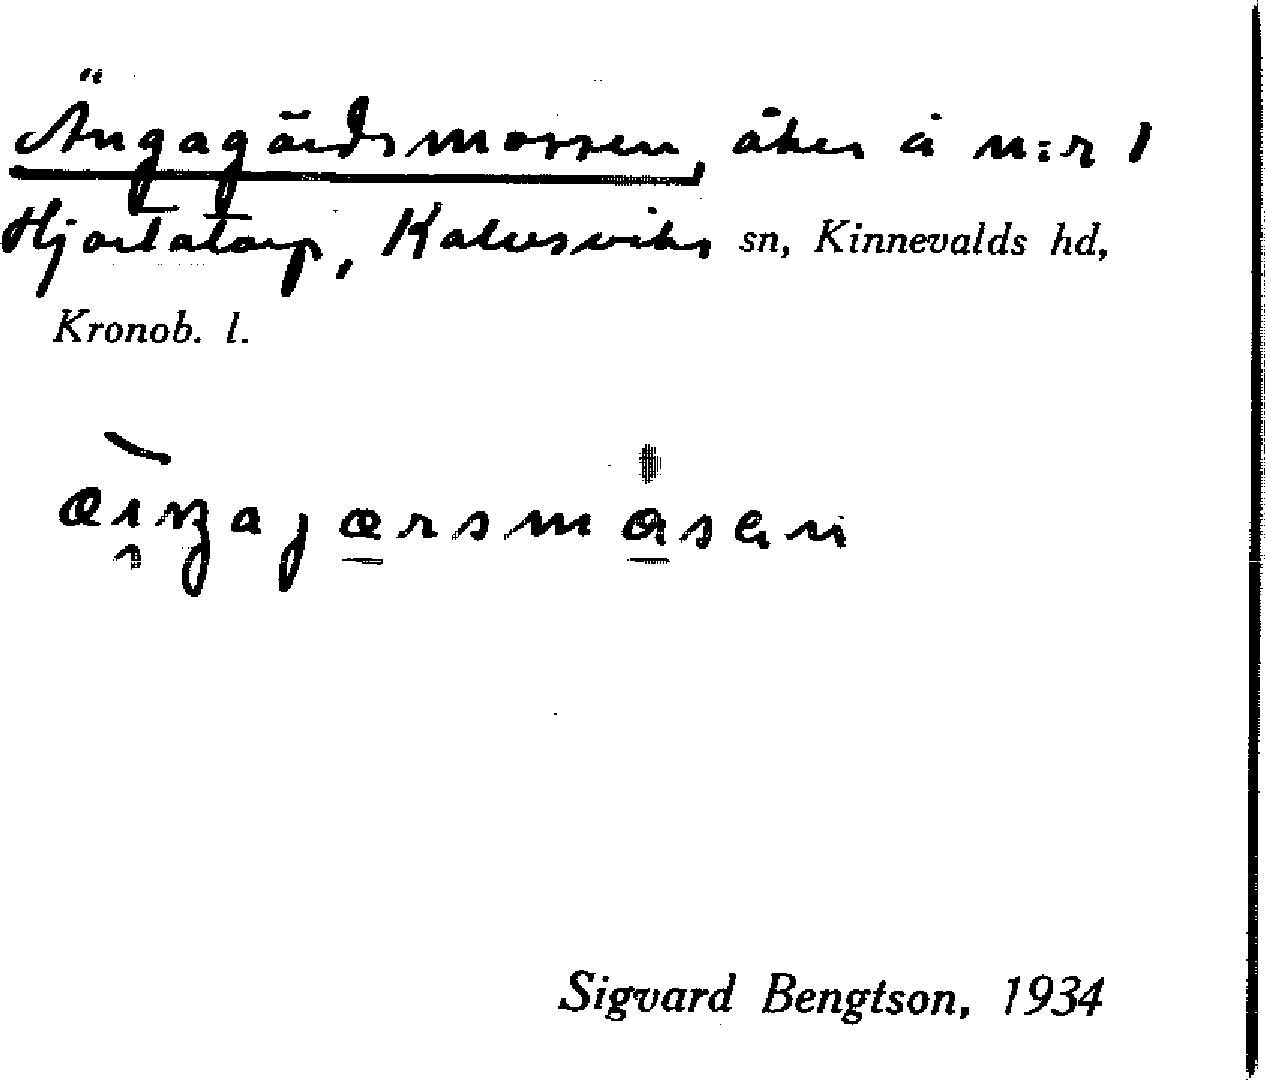 Ängagärdsmossen, åker å n:r 1
Hjortatorp, Kalvsviks sn, Kinnevalds hd,
Kronob. l.
Sigvard Bengtson, 1934